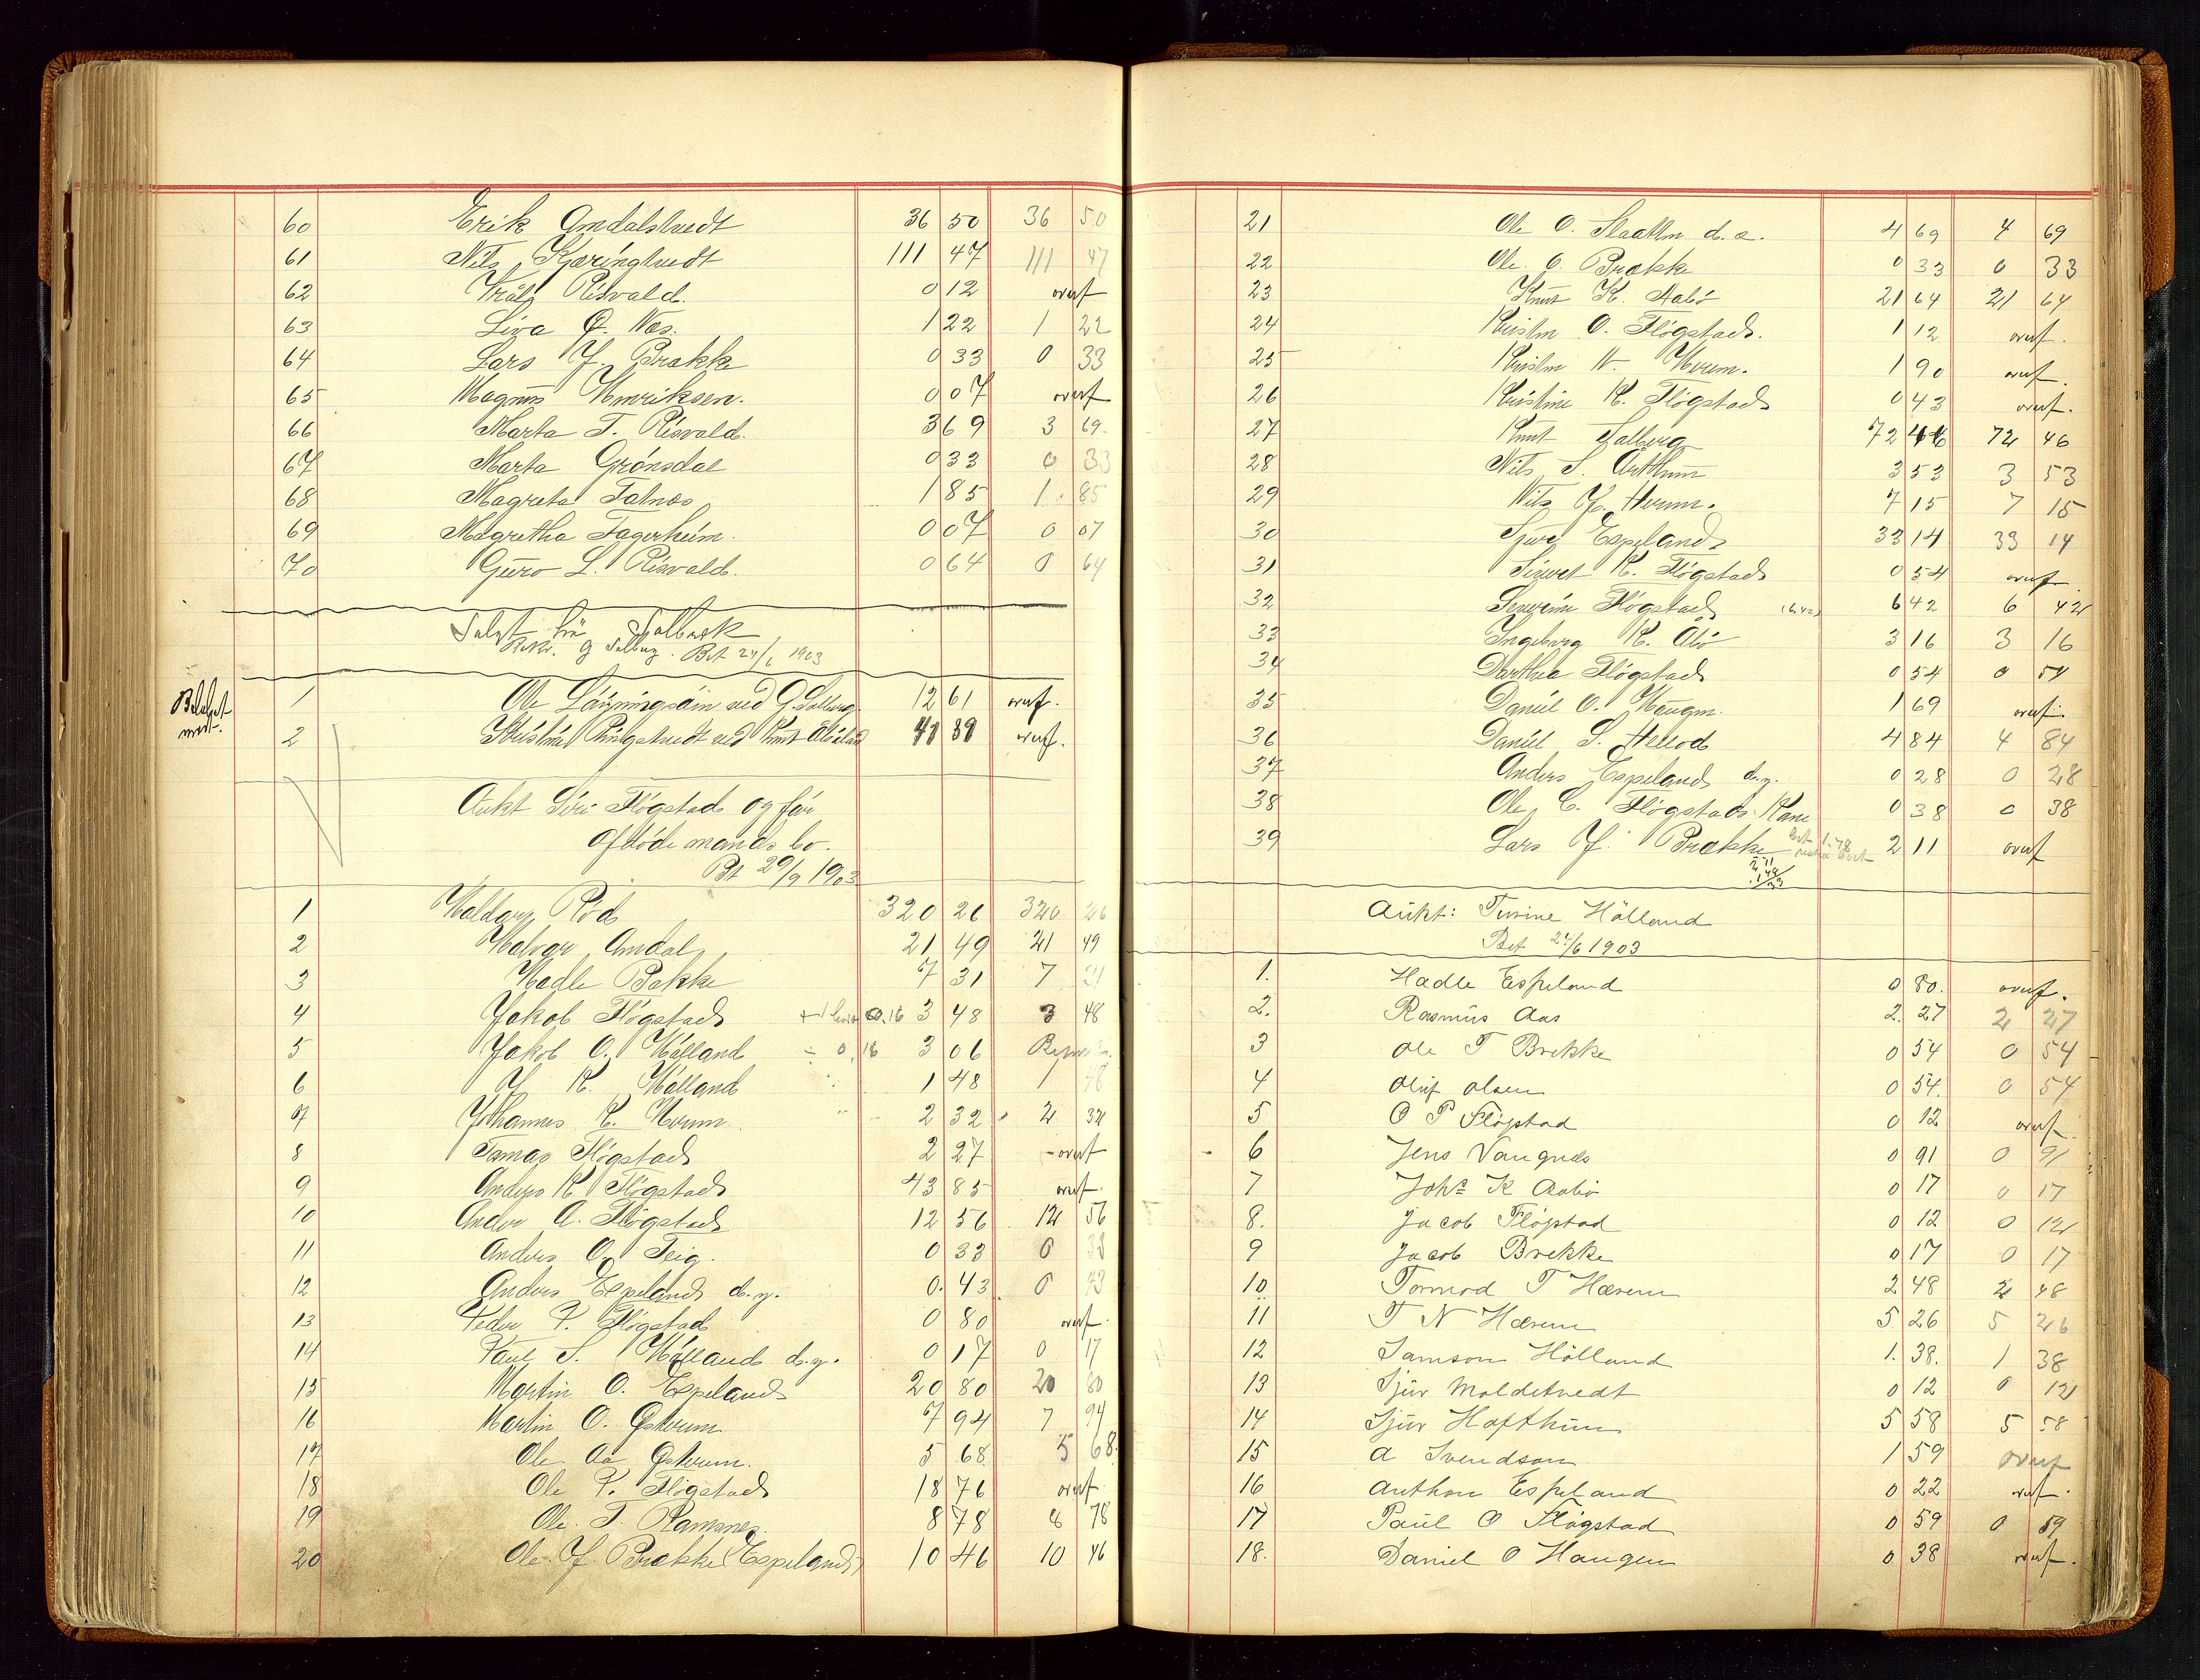 60 Erik Amdalstvedt 36 50 36 50
61 Nils Kjæringtvedt 111 47 111 47
62 Risvald. 0 12 overf
63 Siva Næs. 1 22 1 22
64 Lars J. Brække 0 33 0 33
65 Magnus Henriksen. 0 07 overf
66 Marta T. Risvald. 3 69 3 69
67 Marta Grønsdal 0 33 0 33
68 Magreta Falnæs 1 85 1 85
69 Magretha Fagerheim. 0 07 0 07
70 Guro L. Risvald. 0 64 0 64
Salget fra Solbæk
Bet 24/6 1903
1 Ole ved G. Solberg 12 61 overf.
2 Ringstvedt ved Knut 41 39 overf.
Aukt Siri Fløgstad og før
Afdøde mands bo.
Bet 29/9 1903
1 Haldor Rød 320 26 320 26
2 Halvar Amdal 21 49 21 49
3 Hadle Bakke 7 31 7 31
4 Jakob Fløgstad 0,16 3 48 3 48
5 Jakob O. Hålland ÷ 0,16 3 06
6 J. K. Hålland 1 48 1 48
7 Johannes K. Hærum 2 32 2 32
8 Tomas Fløgstad 2 27 overf
9 Anders K. Fløgstad 43 85 overf.
10 Anders A. Fløgstad 12 56 12 56
11 Anders O. Teig. 0 33 0 33
12 Anders Espeland d.y. 0. 43 0 43
13 Peder P. Fløgstad 0 80 overf.
14 Paul S. Hålland d.y. 0 17 0 17
15 Martin O. Espeland 20 80 20 80
16 Martin O. Østerum 7 94 7 94
17 Ole Aa Østerum. 5 68 5 68.
18 Ole P. Fløgstad 18 76 overf.
19 Ole. T. Ramsnes. 8 78 8 78
20 Ole J. Brække (Espeland) 10 46 10 46
21 Ole O. d.e. 4 69 4 69
22 Ole. O. Brække 0 33 0 33
23 Knut K. Aabø 21 64 21 64
24 O. Fløgstad. 1 12 overf.
25 1 90 overf.
26 Kristine K. Fløgstad 0 43 overf.
27 Knut Solberg 72 46 72 46
28 Nils S. 3 53 3 53
29 Nils J. Hærum. 7 15 7 15
30 Sjur Espeland 33 14 33 14
31 K. Fløgstad 0 54 overf.
32 Severine Fløgstad (6,42) 6 42 6 42
33 Ingeborg K. Åbø 3 16 3 16
34 Darthea Fløgstad 0 54 0 54
35 Daniel O. Haugen. 1 69 overf.
36 Daniel S. 4 84 4 84
37 Anders Espeland d.y. 0 28 0 28
38 Ole C. Fløgstads Kone 0 38 0 38
39 Lars J. Brække 2 11 overf
Aukt: Turine Hålland
Bet 24/6 1903
1. Hadle Espeland 0 80. overf.
2. Rasmus Aas 2. 27 2 27
3 Ole T Brekke 0 54 0 54
4 Oluf Olsen 0 54. 0 54
5 O P Fløgstad 0 12 overf.
6 Jens Vangnæs 0 91 0 91
7 Johs K Aabø 0 17 0 17
8. Jacob Fløgstad 0 12 0 12
9 Jacob Brekke 0 17 0 17
10 Tormod T Hærem 2 48 2 48
11 T N Hærem 5 26 5 26
12 Samson Hålland 1. 38. 1 38
13 Sjur Moldetvedt 0 12 0 12
14 Sjur Hafthun 5 58 5 58
15 A Svendson 1 59 overf
16 Anthon Espeland 0 22 overf.
17 Paul O Fløgstad 0 59 0 59
18. Daniel O Haugen 0. 38 overf.